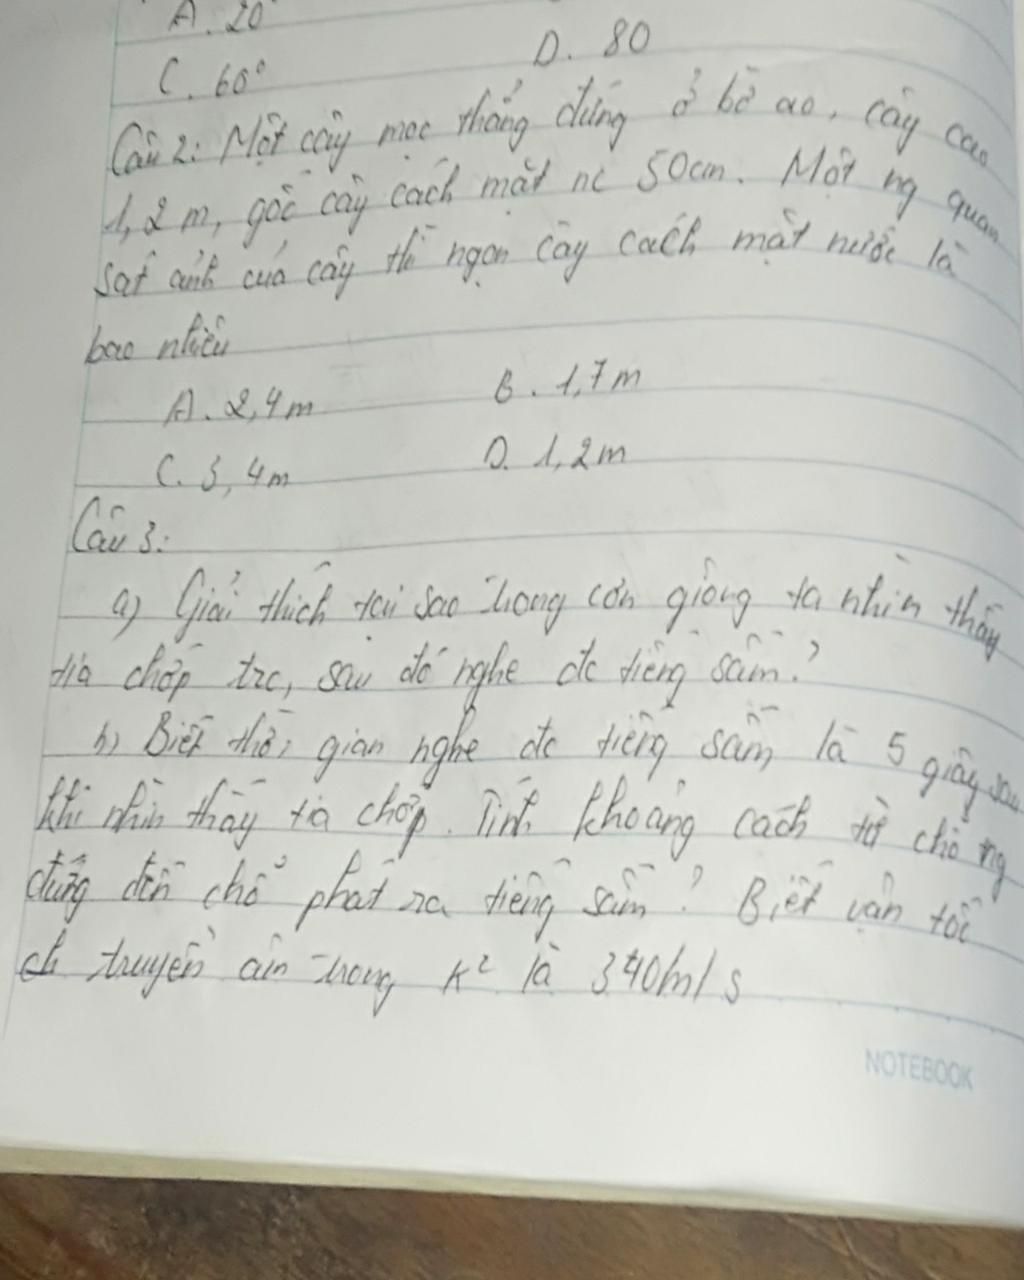 A. 20
C. 60°
D. 80
Câu 2: Một cây mọc thẳng đứng ở bờ ao, cây cao
1,2 m, gốc cây cách mặt nc 50cm. Một ng quan
sát ảnh của cây thì ngọn cây cách mặt nước là
bao nhiêu
A. 2,4m
B. 1,7m
C. 3,4m
D. 1,2m
Câu 3:
a) Giải thích tại sao trong cơn giông ta nhìn thấy
tia chớp trc, sau đó nghe đc tiếng sấm?
b) Biết thời gian nghe đc tiếng sấm là 5 giây sau
khi nhìn thấy tia chớp. Tính khoảng cách từ chỗ ng
đứng đến chỗ phát ra tiếng sấm? Biết vận tốc
truyền âm trong k² là 340m/s
NOTEBOOK